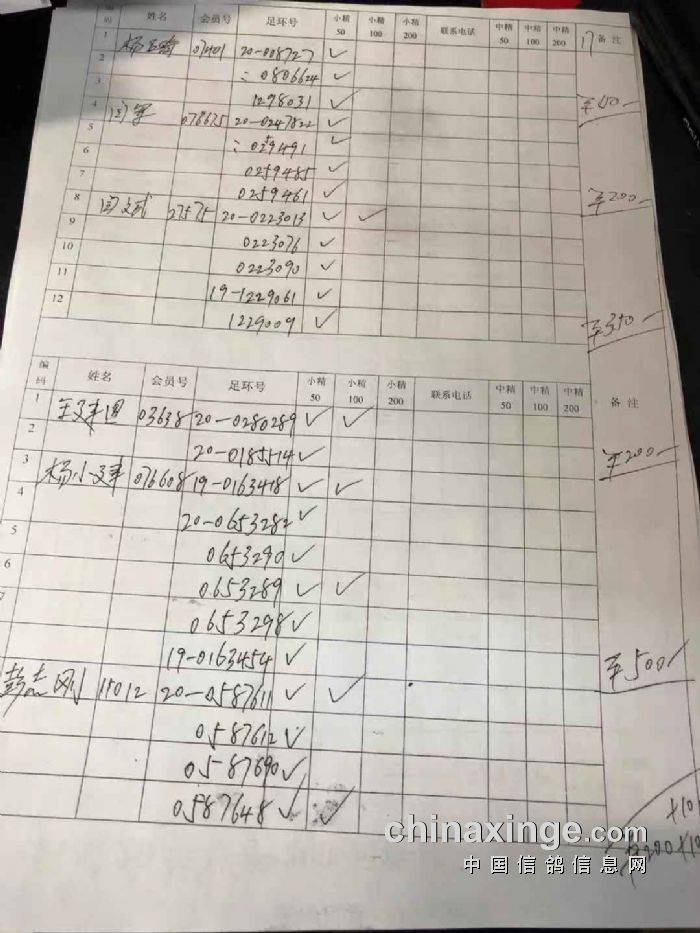 编码 姓名 会员号 足环号 小精50 小精100 小精200 联系电话 中精50 中精100 中精200 备注
1 07401 20-008727 ✓
2 0806624 ✓
3 1298031 ✓
4 078675 20-0247822 ✓
5 029491 ✓
6 0259485 ✓
7 0259461 ✓ ¥200
8 27575 20-0223013 ✓ ✓
9 0223076 ✓
10 0223090 ✓
11 19-1229061 ✓
12 1229009 ✓ ¥350
编码 姓名 会员号 足环号 小精50 小精100 小精200 联系电话 中精50 中精100 中精200 备注
1 03638 20-0280289 ✓ ✓
2 20-0185514 ✓ ¥200
3 杨小建 076608 19-0163418 ✓ ✓
4 20-0653282 ✓
5 0653290 ✓
6 0653289 ✓ ✓
7 0653298 ✓
19-0163454 ✓ ¥500
彭志刚 11012 20-0587611 ✓ ✓
0587612 ✓
0587690 ✓
0587648 ✓ ✓
chinaxinge.com
中国信鸽信息网